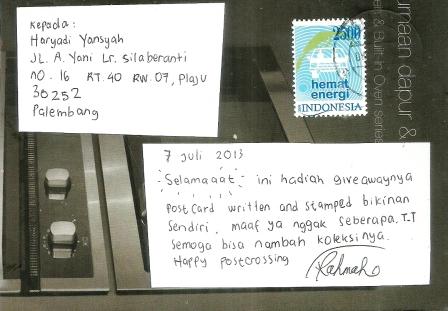 Kepada :
Haryadi Yansyah
JL. A. Yani Lr. Silaberanti
no. 16 RT. 40 RW. 07, Plaju
30252
Palembang
2500
hemat
energi
INDONESIA
umaan dapur &
& Built in Oven series
7 Juli 2013
Selamaaat ini hadiah giveawaynya
postcard written and stamped bikinan
sendiri. maaf ya nggak seberapa. T-T
Semoga bisa nambah koleksinya.
Happy postcrossing
Rahmah